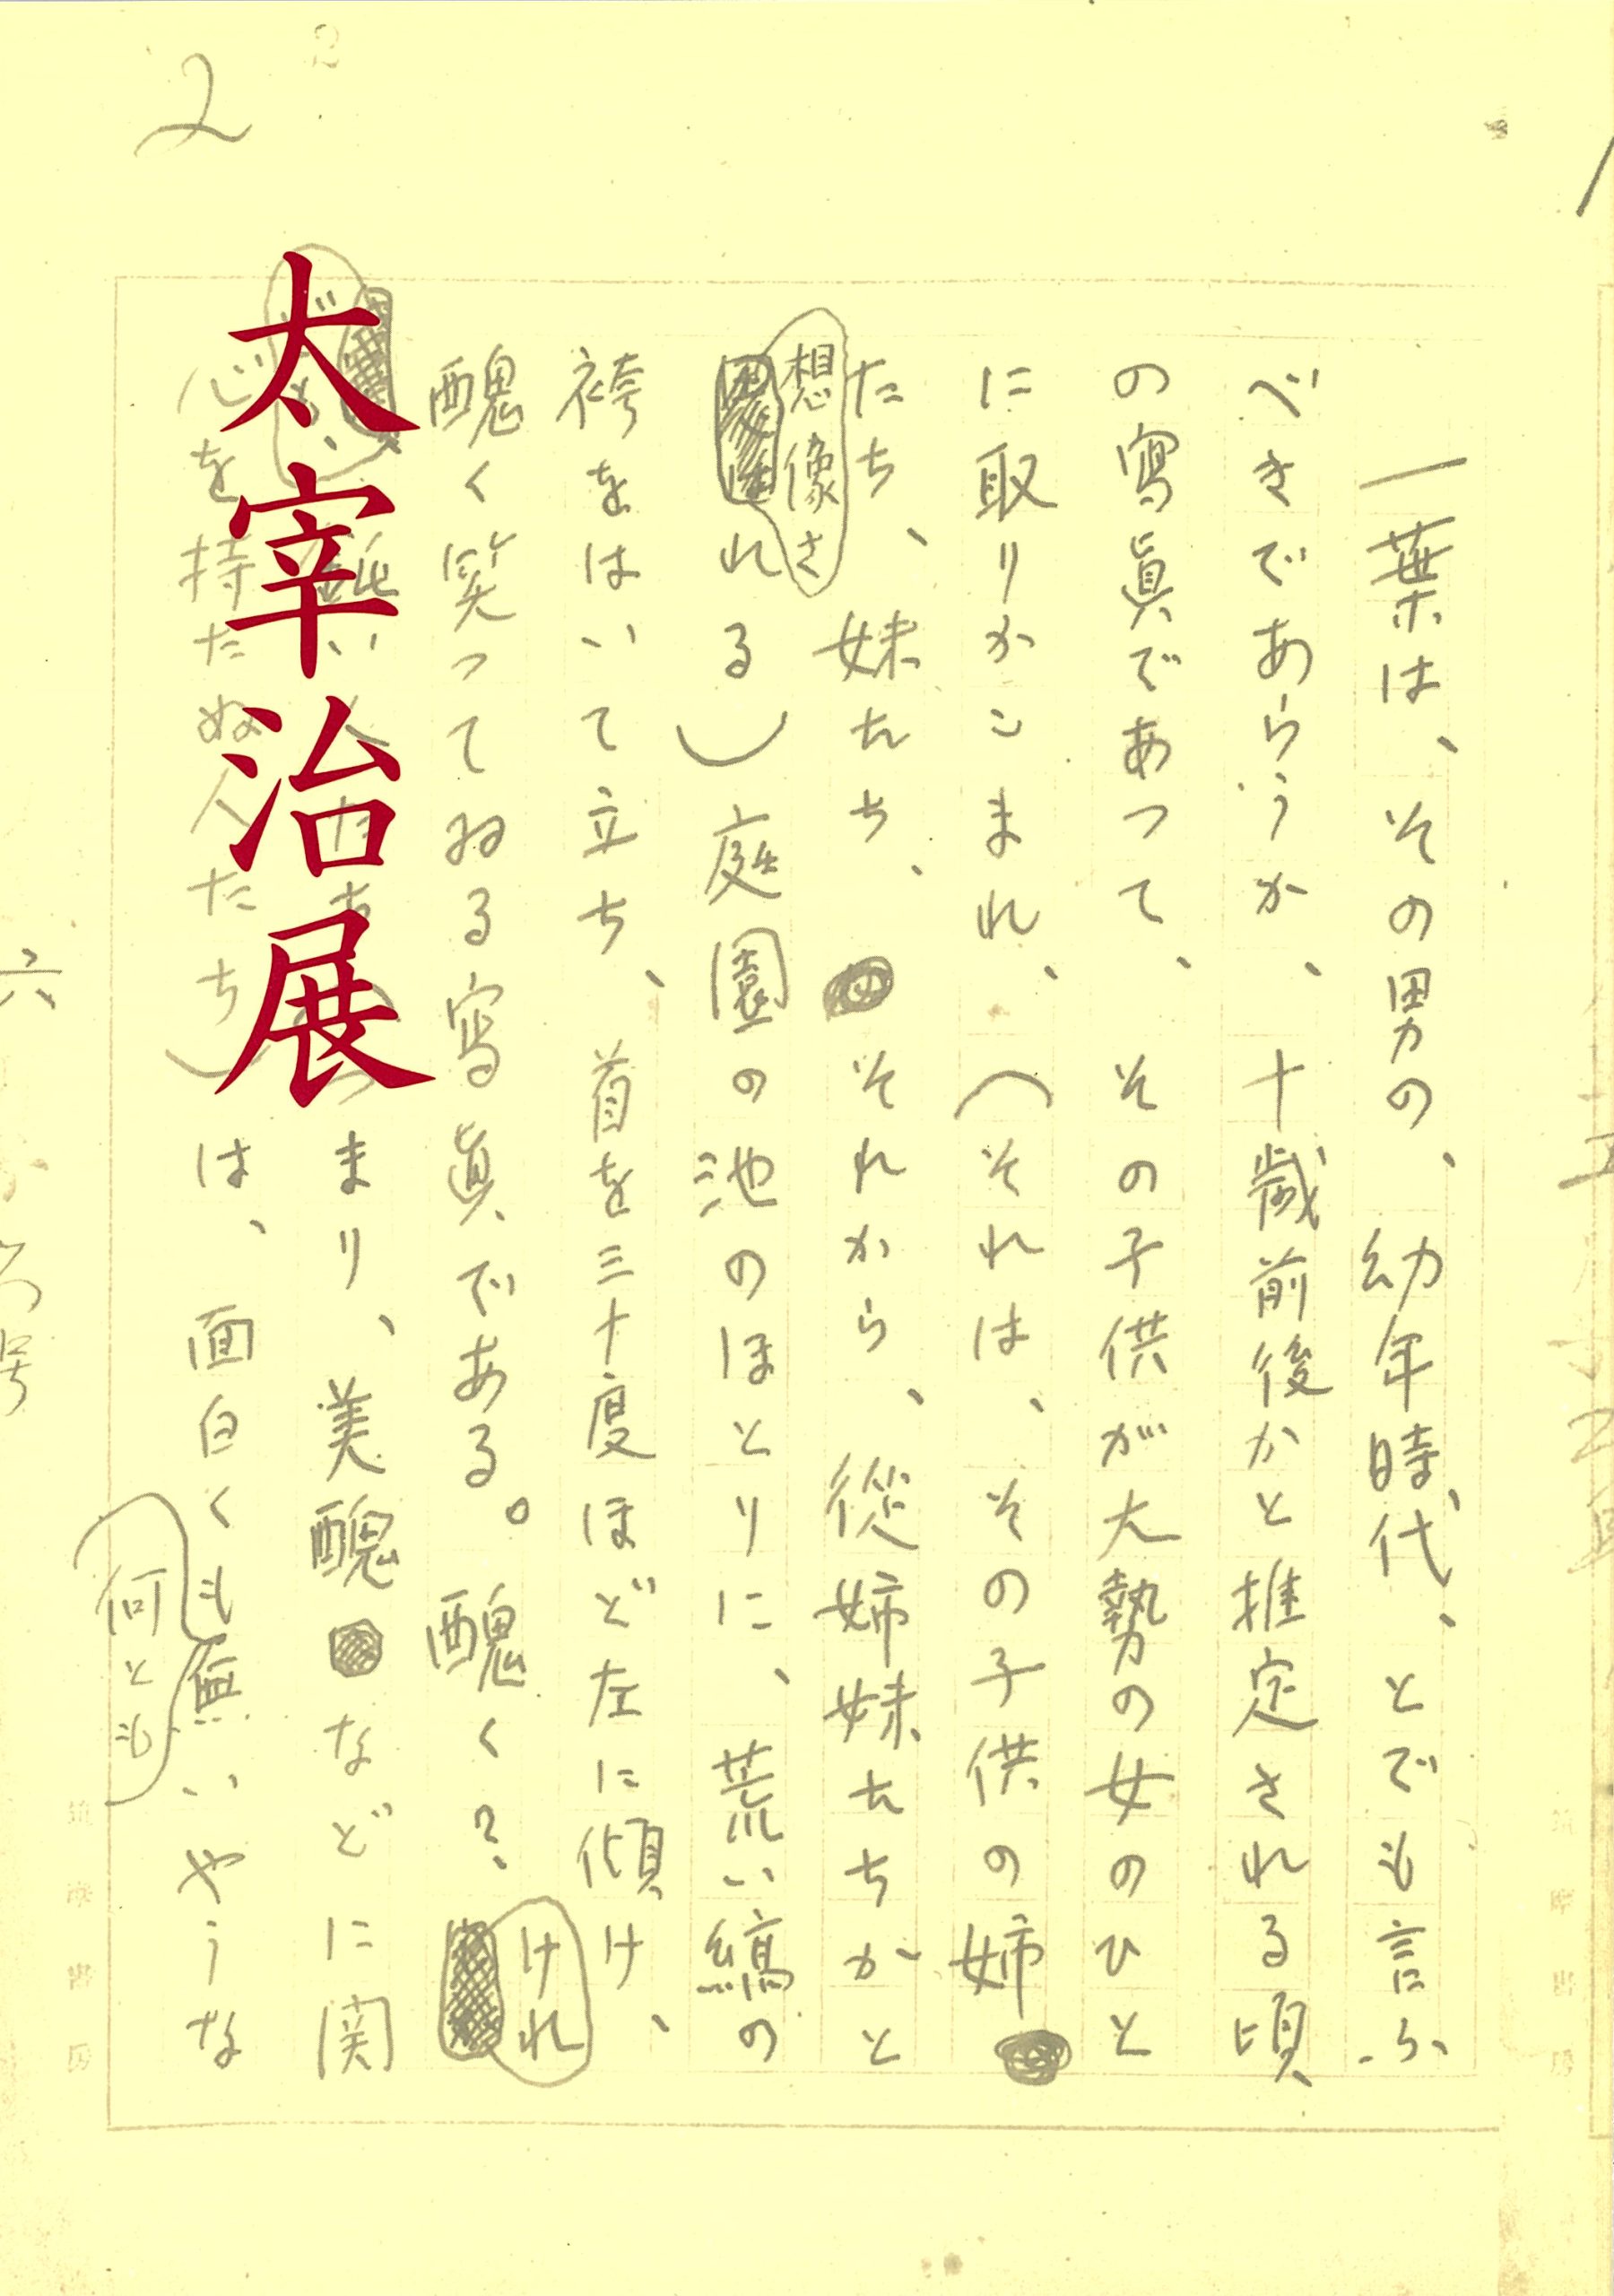 太宰治展
2
一葉は、その男の、幼年時代、とでも言ふ
べきであらうか、十歳前後かと推定される頃
の寫眞であつて、その子供が大勢の女のひと
に取りかこまれ、（それは、その子供の姉
たち、妹たち、それから、從姉妹たちかと
想像さ
れる）庭園の池のほとりに、荒い縞の
袴をはいて立ち、首を三十度ほど左に傾け、
醜く笑つてゐる寫眞である。醜く？
けれ
まり、美醜などに関
心を持たぬ人たち）は、面白くも無いやうな
何とも
六
号